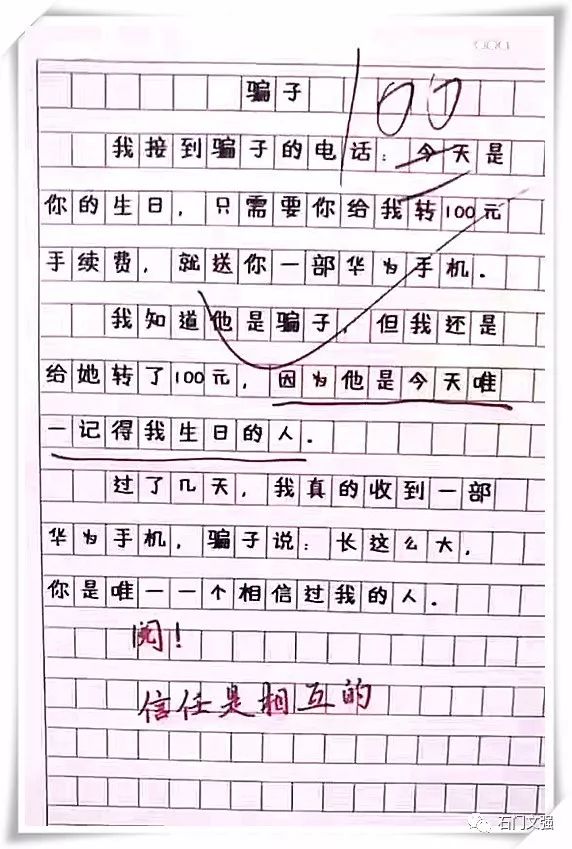 骗子
100
我接到骗子的电话：今天是
你的生日，只需要你给我转100元
手续费，就送你一部华为手机．
我知道他是骗子，但我还是
给她转了100元，因为他是今天唯
一记得我生日的人．
过了几天，我真的收到一部
华为手机，骗子说：长这么大，
你是唯一一个相信过我的人．
阅！
信任是相互的
石门文强